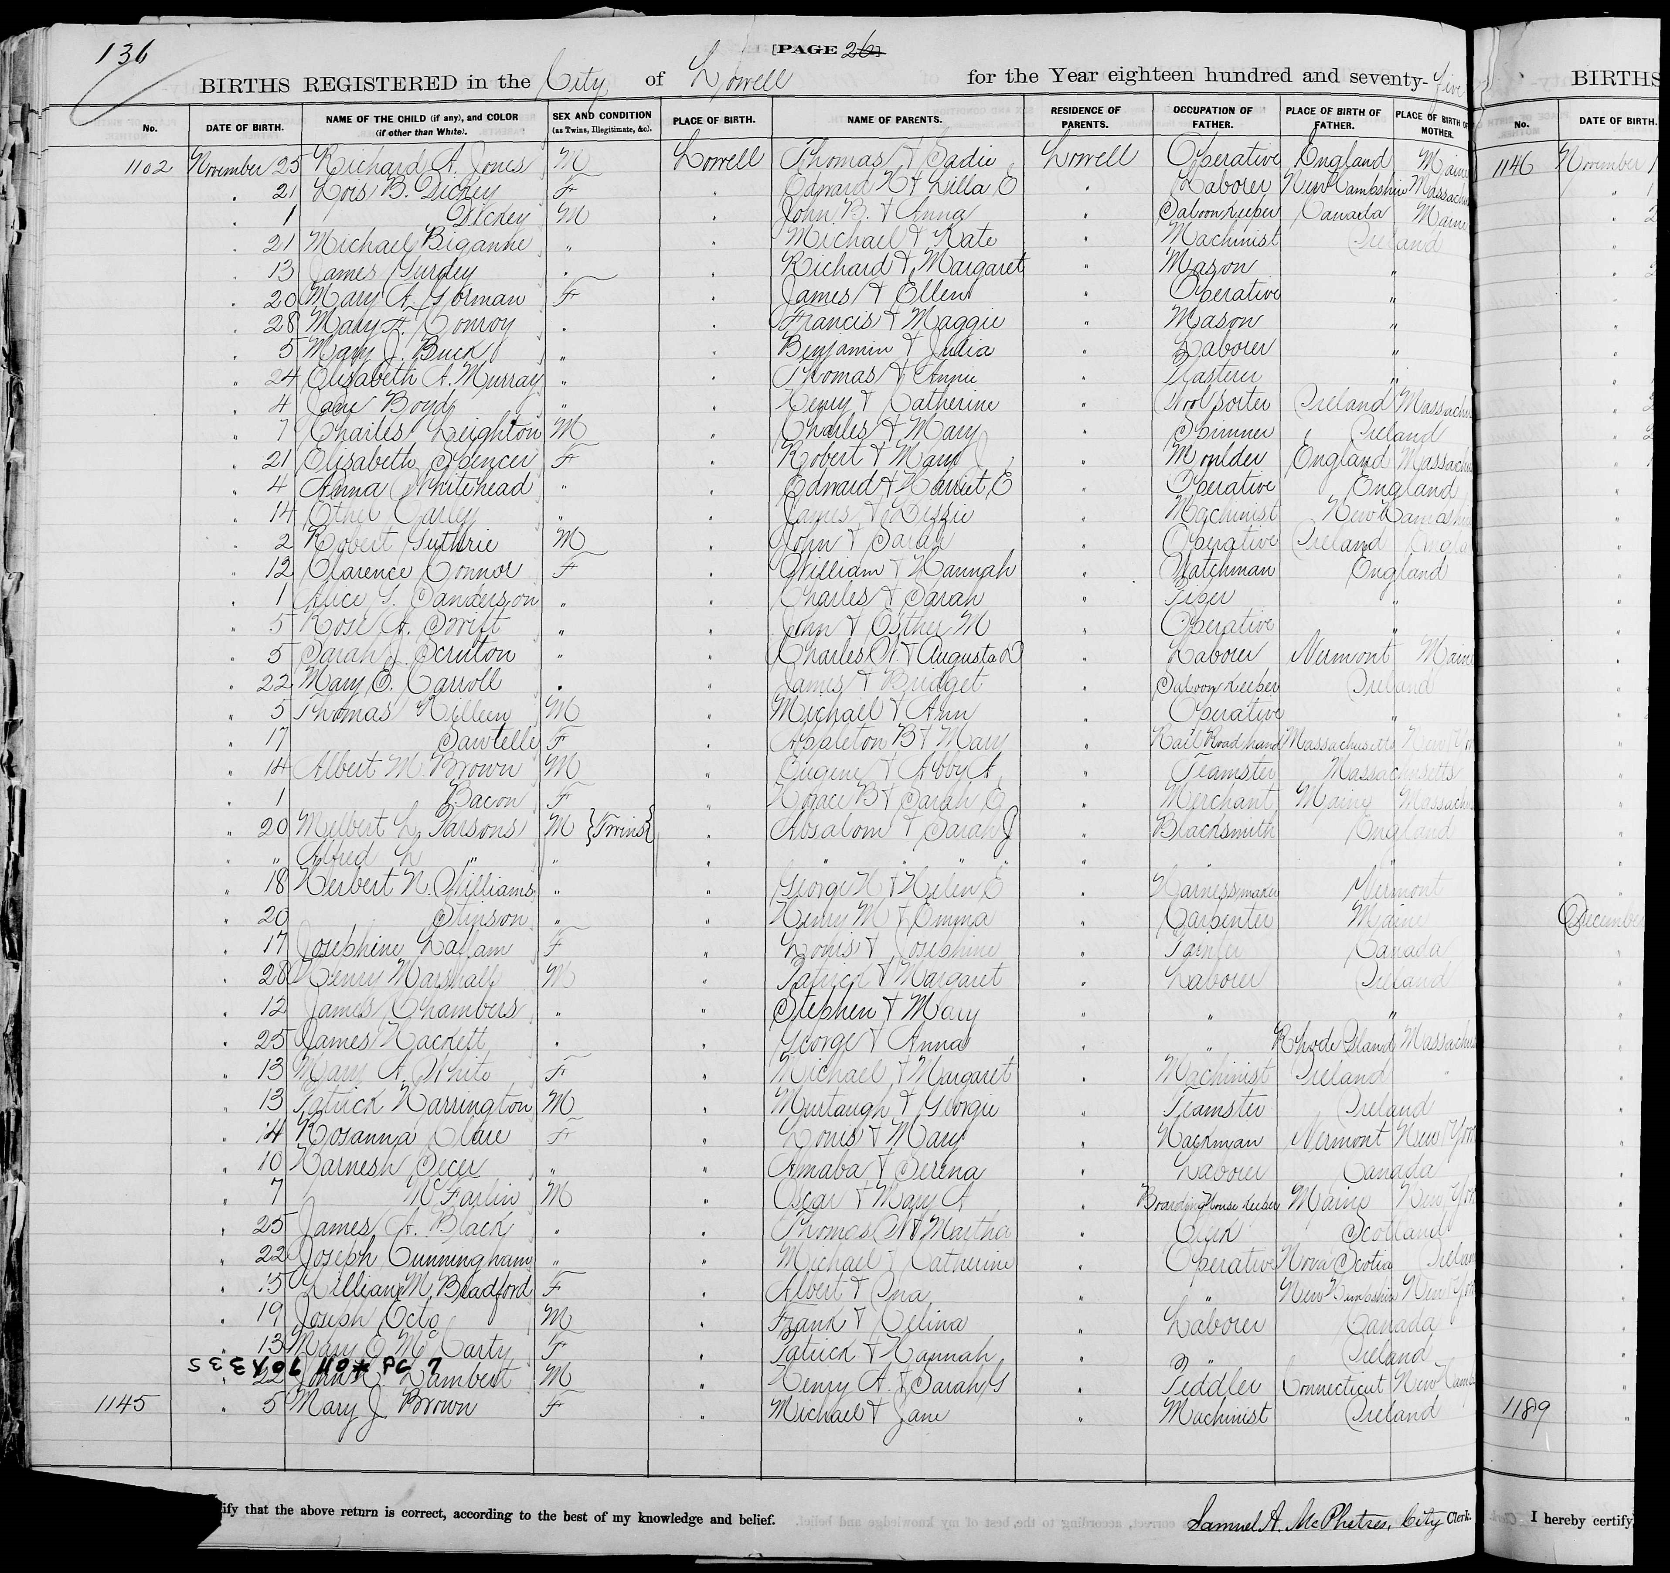 136
[PAGE 26]
BIRTHS REGISTERED in the City of Lowell for the Year eighteen hundred and seventy- five
No. DATE OF BIRTH. NAME OF THE CHILD (if any), and COLOR (if other than White). SEX AND CONDITION (as Twins, Illegitimate, &c). PLACE OF BIRTH. NAME OF PARENTS. RESIDENCE OF PARENTS. OCCUPATION OF FATHER. PLACE OF BIRTH OF FATHER. PLACE OF BIRTH OF MOTHER.
1102 November 25 Richard A. Jones M Lowell Thomas & Sadie Lowell Operative England Maine
" 21 Lois B. Dickey F " Edward N & Lilla E " Laborer New Hampshire Massachu
" 1 Dickey M " John B. & Anna " Saloon Keeper Canada Maine
" 21 Michael Biganne " " Michael & Kate " Machinist Ireland
" 13 James Gurdey " " Richard & Margaret " Mason "
" 20 Mary A. Gorman F " James & Ellen " Operative "
" 28 Mary A. Conroy " " Francis & Maggie " Mason "
" 5 Mary J. Buck " " Benjamin & Julia " Laborer "
" 24 Elisabeth A. Murray " " Thomas & Annie "
" 4 Jane Boyd " " Henry & Catherine " Wool Sorter Ireland Massachu
" 7 Charles Leighton M " Charles & Mary " Spinner Ireland
" 21 Elisabeth Spencer F " Robert & Mary J " Moulder England Massachu
" 4 Anna Whitehead " " Edward & Harriet E " Operative England
" 14 Ethel Carley " " James & Lizzie " Machinist New Hampshire
" 2 Robert Guthrie M " John & Sarah " Operative Ireland Engla
" 12 Clarence Connor F " William & Hannah " Watchman England
" 1 Alice S. Sanderson " " Charles & Sarah " "
" 5 Rose A. Swift " " John & Esther M " Operative "
" 5 Sarah J. Scruton " " Charles W & Augusta D " Laborer Vermont Maine
" 22 Mary E. Carroll " " James & Bridget " Saloon Keeper Ireland
" 5 Thomas Killeen M " Michael & Ann " Operative "
" 17 Sawtelle F " Appleton B & Mary " Rail Road hand Massachusetts New Yor
" 14 Albert M. Brown M " Eugene & Abby A. " Teamster Massachusetts
" 1 Bacon F " Horace B & Sarah E " Merchant Maine Massachu
" 20 Melbert L. Parsons M } Twins { " Absalom & Sarah J " Blacksmith England
" " Alfred L " " " " " " " " " "
" 18 Herbert N. Williams " " George H & Helen E " Harness maker Vermont
" 20 Stinson " " Henry M & Emma " Carpenter Maine
" 17 Josephine Lalam F " Louis & Josephine " Canada
" 28 Henry Marshall M " Patrick & Margaret " Laborer Ireland
" 12 James Chambers " " Stephen & Mary " " "
" 25 James Hackett " " George & Anna " " Rhode Island Massachu
" 13 Mary A. White F " Michael & Margaret " Machinist Ireland "
" 13 Patrick Harrington M " Murtaugh & Georgie " Teamster Ireland
" 14 Rosanna Clare F " Louis & Mary " Hackman Vermont New Yor
" 10 " " Amaba & Serena " Laborer Canada
" 7 McFarlin M " Oscar & Mary A. " Boarding House Keeper Maine New Yor
" 25 James A. Black " " Thomas W & Martha " Clerk Scotland
" 22 Joseph Cunningham " " Michael & Catherine " Operative Nova Scotia Irelan
" 15 Lillian M. Bradford F " Albert & Ina " " New Hampshire New Yor
" 19 Joseph Octo M " Frank & Celina " Laborer Canada
" 13 Mary E. McCarty F " Patrick & Hannah " " Ireland
" 22 John R. Lambert M " Henry A. & Sarah G " Peddler Connecticut New Hamp
1145 " 5 Mary J. Brown F " Michael & Jane " Machinist Ireland
ify that the above return is correct, according to the best of my knowledge and belief.
Samuel A. McPhetres, City Clerk.
BIRTHS
No. DATE OF BIRTH.
1146 November 1
December
1189
I hereby certify